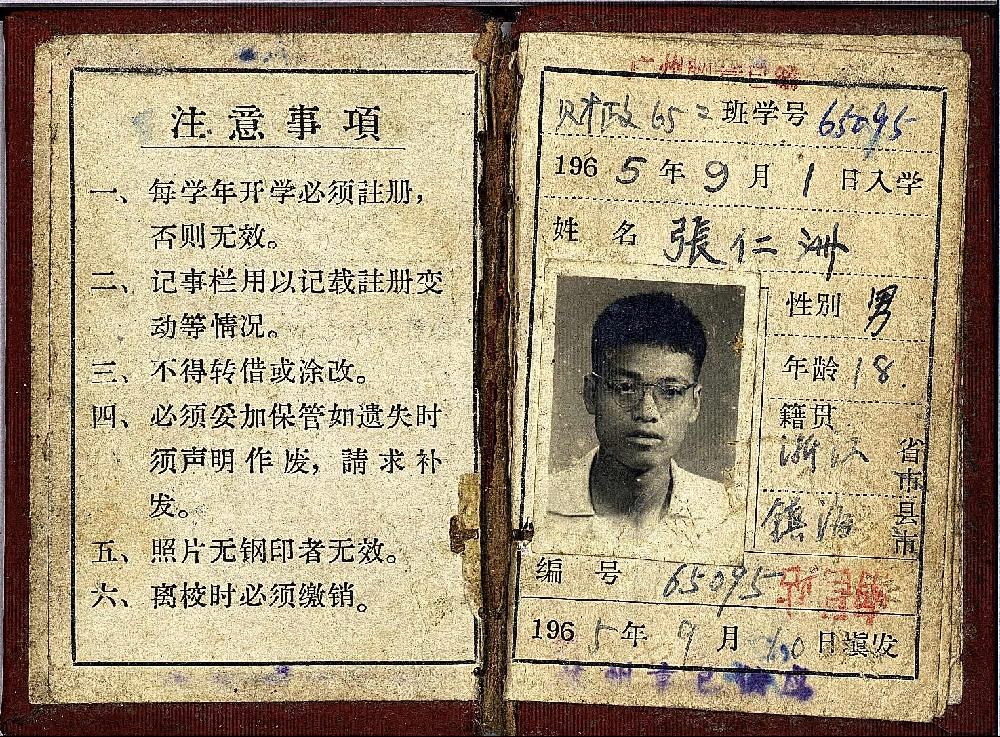 注意事項
一、每学年开学必须註册，
否则无效。
二、记事栏用以记载註册变
动等情况。
三、不得转借或涂改。
四、必须妥加保管如遗失时
须声明作废，請求补
发。
五、照片无钢印者无效。
六、离校时必须缴销。
财政65二班学号65095
1965年9月1日入学
姓名 張仁洲
性别 男
年龄 18.
籍贯
浙江 省市
镇海 县市
编号 65095
1965年9月10日填发